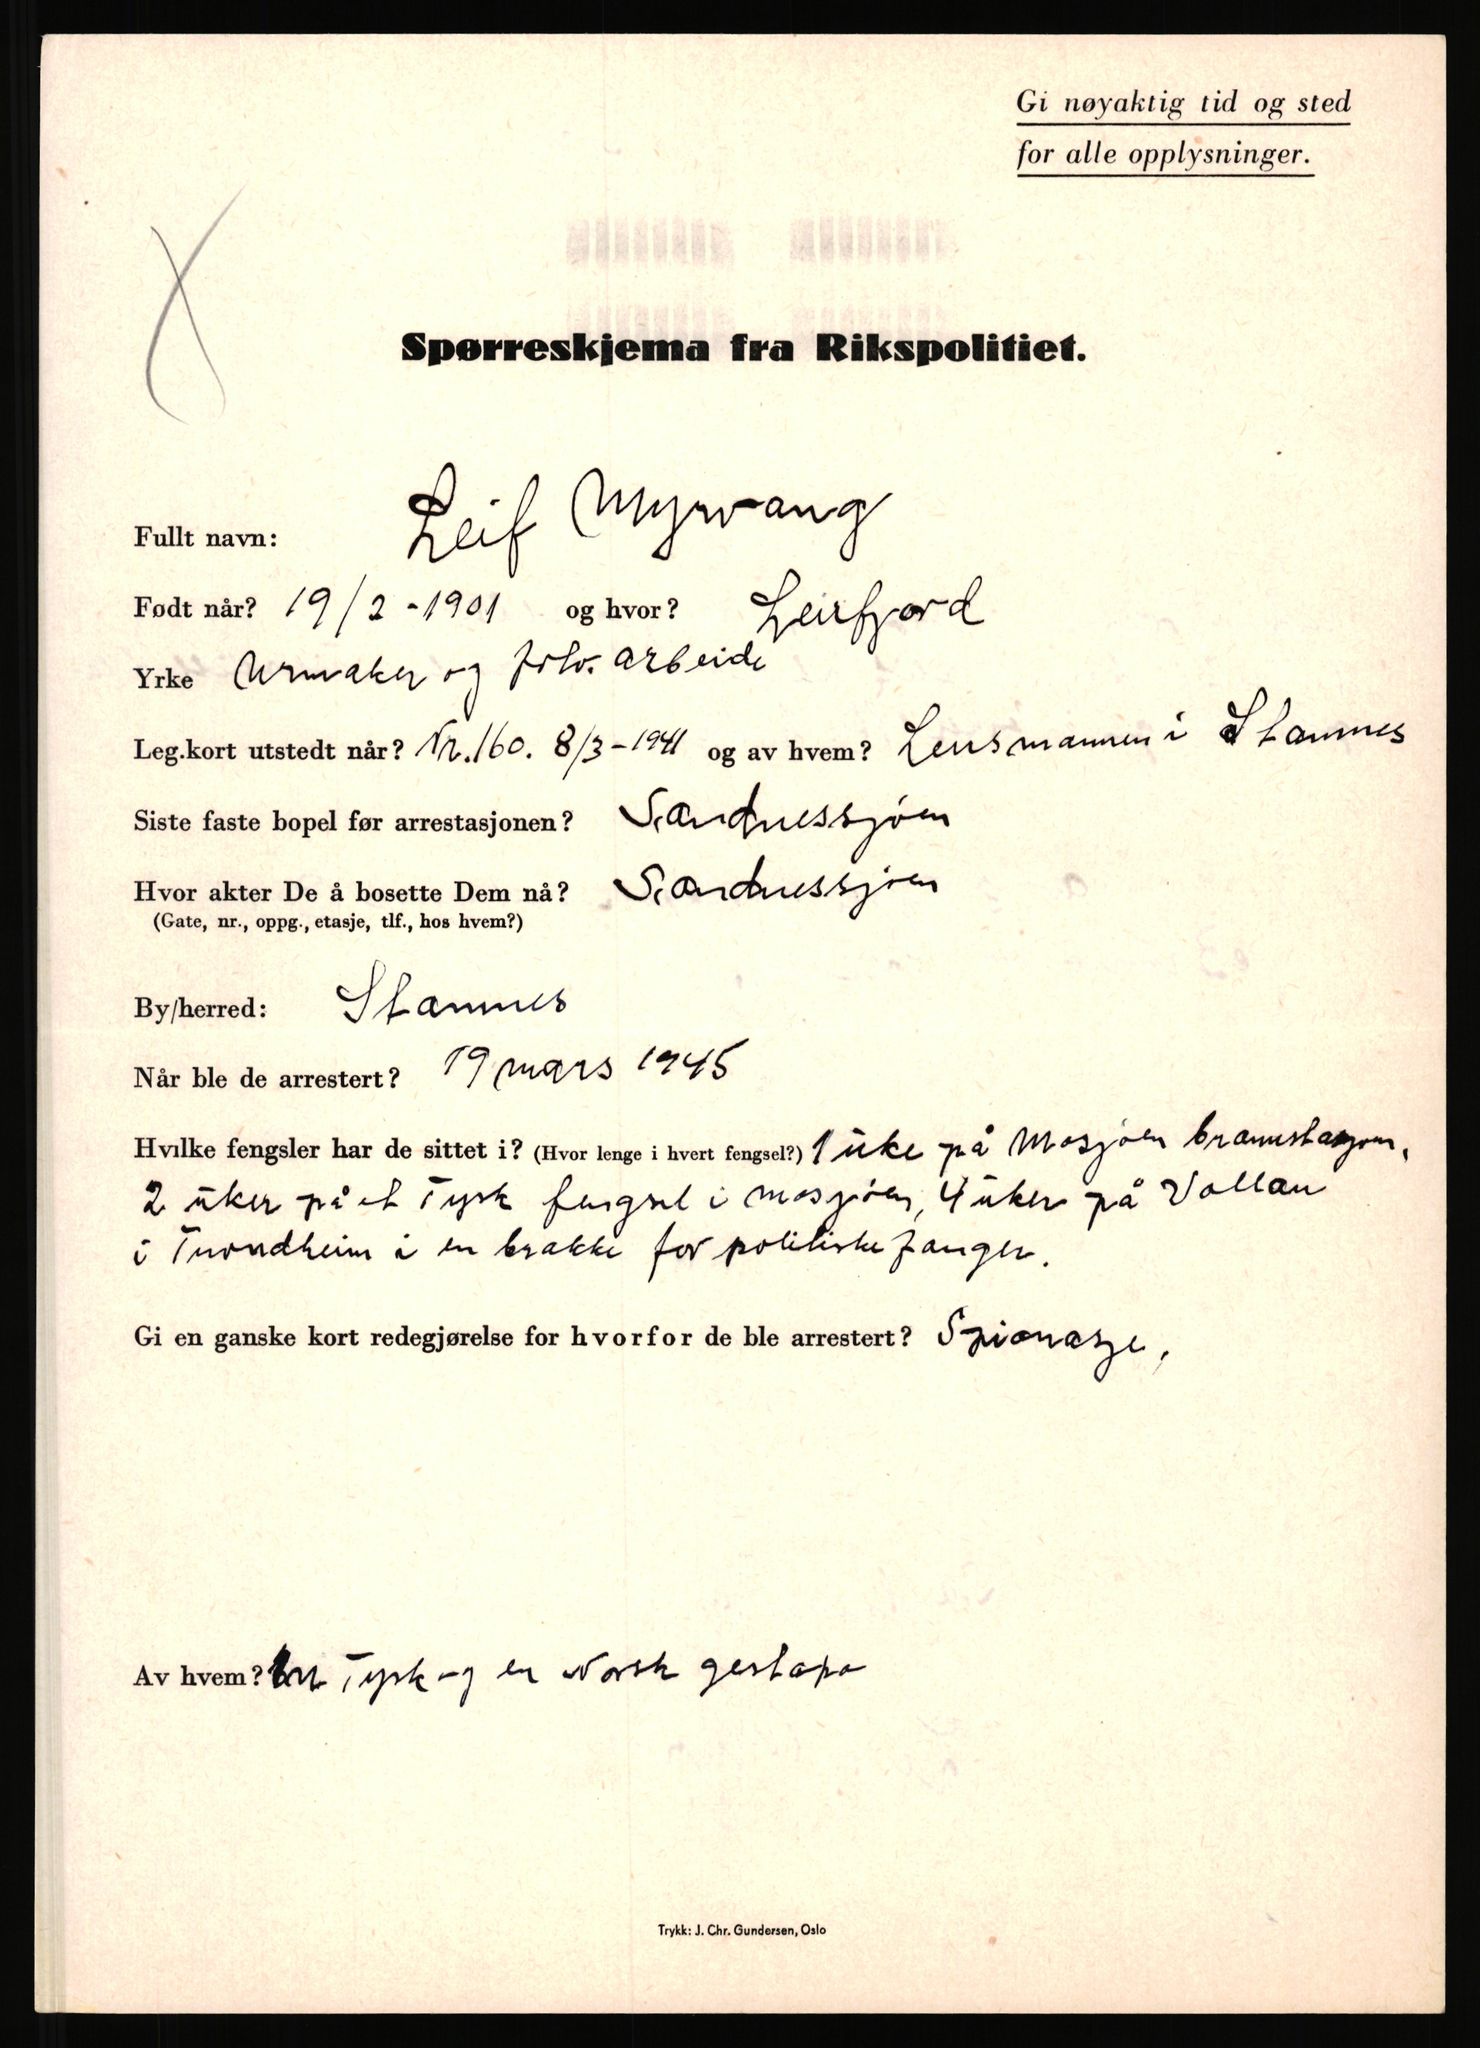 Gi nøyaktig tid og sted
for alle opplysninger.
Spørreskjema fra Rikspolitiet.
Fullt navn: Leif Myrvang
Født når? 19/2-1901 og hvor? Leirfjord
Yrke Urmaker og foto. arbeide
Leg.kort utstedt når? Nr. 160. 8/3-1941 og av hvem? Lensmannen i Stamnes
Siste faste bopel før arrestasjonen? Sandnessjøen
Hvor akter De å bosette Dem nå? Sandnessjøen
(Gate, nr., oppg., etasje, tlf., hos hvem?)
By/herred: Stamnes
Når ble de arrestert? 19 mars 1945
Hvilke fengsler har de sittet i? (Hvor lenge i hvert fengsel?) 1 uke på Mosjøen brannstasjon,
2 uker på et Tysk fengsel i Mosjøen, 4 uker på Vollan
i Trondheim i en brakke for politiske fanger.
Gi en ganske kort redegjørelse for hvorfor de ble arrestert? Spionasje,
Av hvem? En Tysk og en Norsk gestapo
Trykk: J. Chr. Gundersen, Oslo